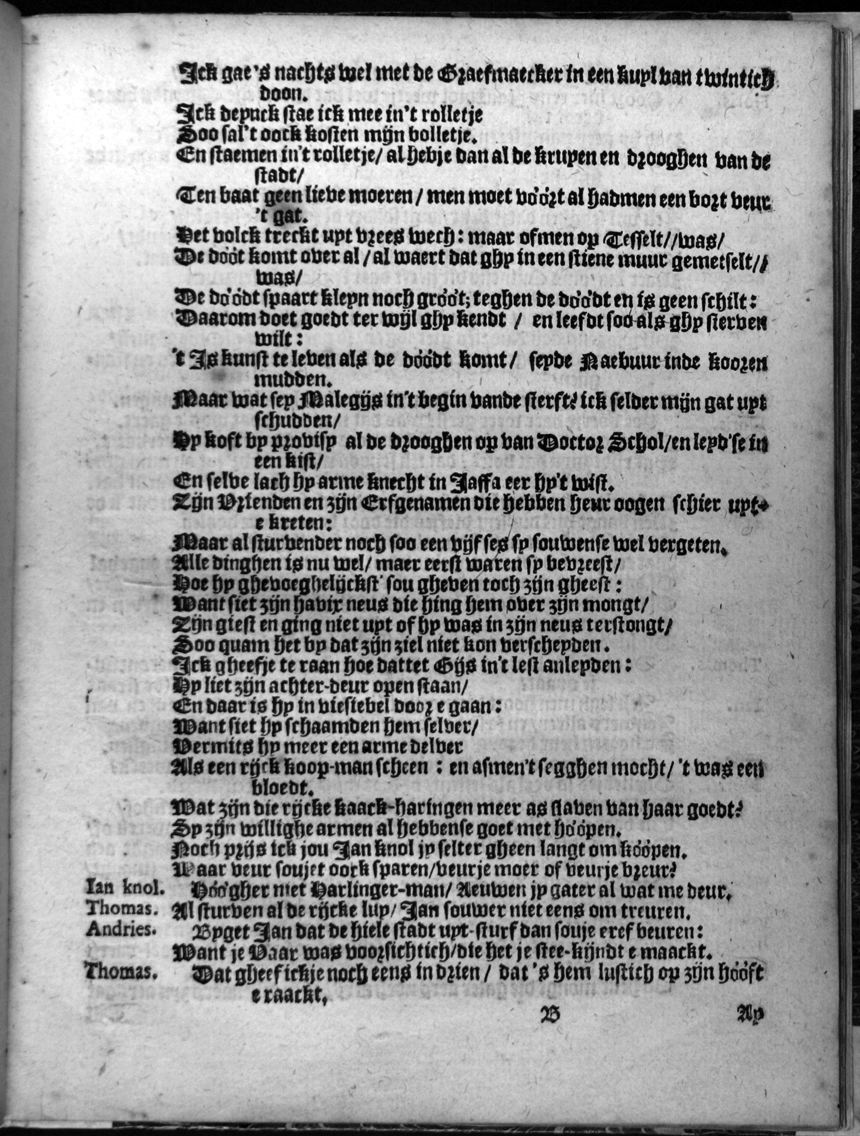 Ick gae's nachts wel met de Graefmaecker in een kuyl van twintich
doon.
Ick depuck stae ick mee in't rolletje
Soo sal't oock kosten mijn bolletje.
En staemen in't rolletje/ al hebje dan al de kruyen en drooghen van de
stadt/
Ten baat geen lieve moeren/ men moet vóórt al hadmen een bort veur
't gat.
Het volck treckt uyt vrees wech: maar ofmen op Tesselt//was/
De dóót komt over al/ al waert dat ghy in een stiene muur gemetselt//
was/
De dóódt spaart kleyn noch gróót; teghen de dóódt en is geen schilt:
Daarom doet goedt ter wijl ghy kendt / en leefdt soo als ghy sterven
wilt:
't Is kunst te leven als de dóódt komt/ seyde Naebuur inde kooren
mudden.
Maar wat sey Malegijs in't begin vande sterft? ick selder mijn gat uyt
schudden/
Hy koft by provisy al de drooghen op van Doctor Schol/ en leyd'se in
een kist/
En selve lach hy arme knecht in Jaffa eer hy't wist.
Zijn Vrienden en zijn Erfgenamen die hebben heur oogen schier uyt-
e kreten:
Maar al sturvender noch soo een vijf ses sy souwense wel vergeten.
Alle dinghen is nu wel/ maer eerst waren sy bevreest/
Hoe hy ghevoeghelijckst sou gheven toch zijn gheest:
Want siet zijn havix neus die hing hem over zijn mongt/
Zijn giest en ging niet uyt of hy was in zijn neus terstongt/
Soo quam het by dat zijn ziel niet kon verscheyden.
Ick gheefje te raan hoe dattet Gijs in't lest anleyden:
Hy liet zijn achter-deur open staan/
En daar is hy in viesiebel door e gaan:
Want siet hy schaamden hem selver/
Vermits hy meer een arme delver
Als een rijck koop-man scheen : en asmen't segghen mocht/ 't was een
bloedt.
Wat zijn die rijcke kaack-haringen meer as slaven van haar goedt?
Sy zijn willighe armen al hebbense goet met hóópen.
Noch prijs ick jou Jan knol jy selter gheen langt om kóópen.
Waar veur soujet oock sparen/ veurje moer of veurje vreur?
Ian knol. Hóógher niet Harlinger-man/ Aeuwen jy gater al wat me deur.
Thomas. Al sturven al de rijcke luy/ Jan souwer niet eens om treuren.
Andries. Byget Jan dat de hiele stadt uyt-sturf dan souje eref beuren:
Want je Vaar was voorsichtich/ die het je stee-kijndt e maackt.
Thomas. Dat gheef ickje noch eens in drien/ dat 's hem lustich op zijn hóóft
e raackt.
B Ay